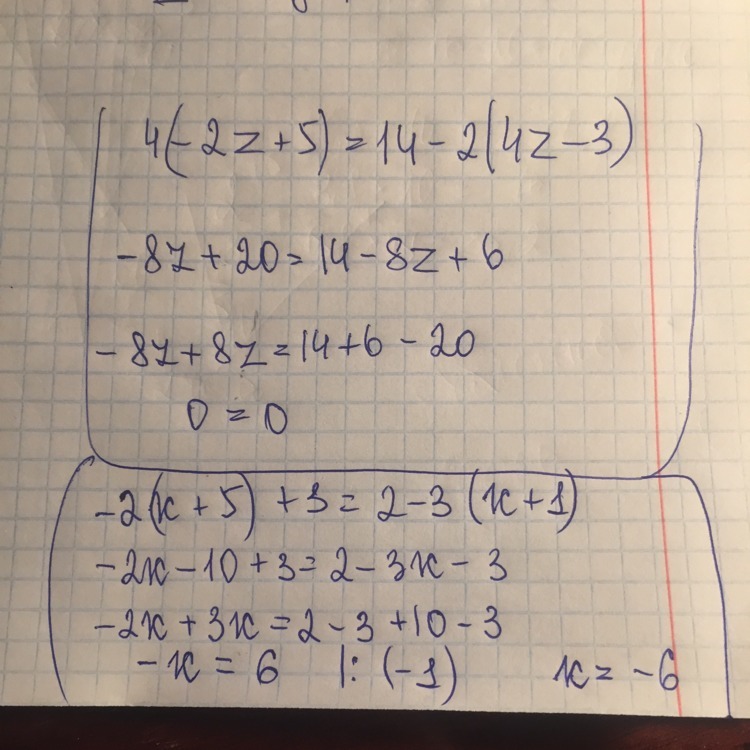 4(-2z+5)=14-2(4z-3)
-8z+20=14-8z+6
-8z+8z=14+6-20
0=0
-2(к+5)+3=2-3(к+1)
-2к-10+3=2-3к-3
-2к+3к=2-3+10-3
-к=6 |:(-1) к=-6